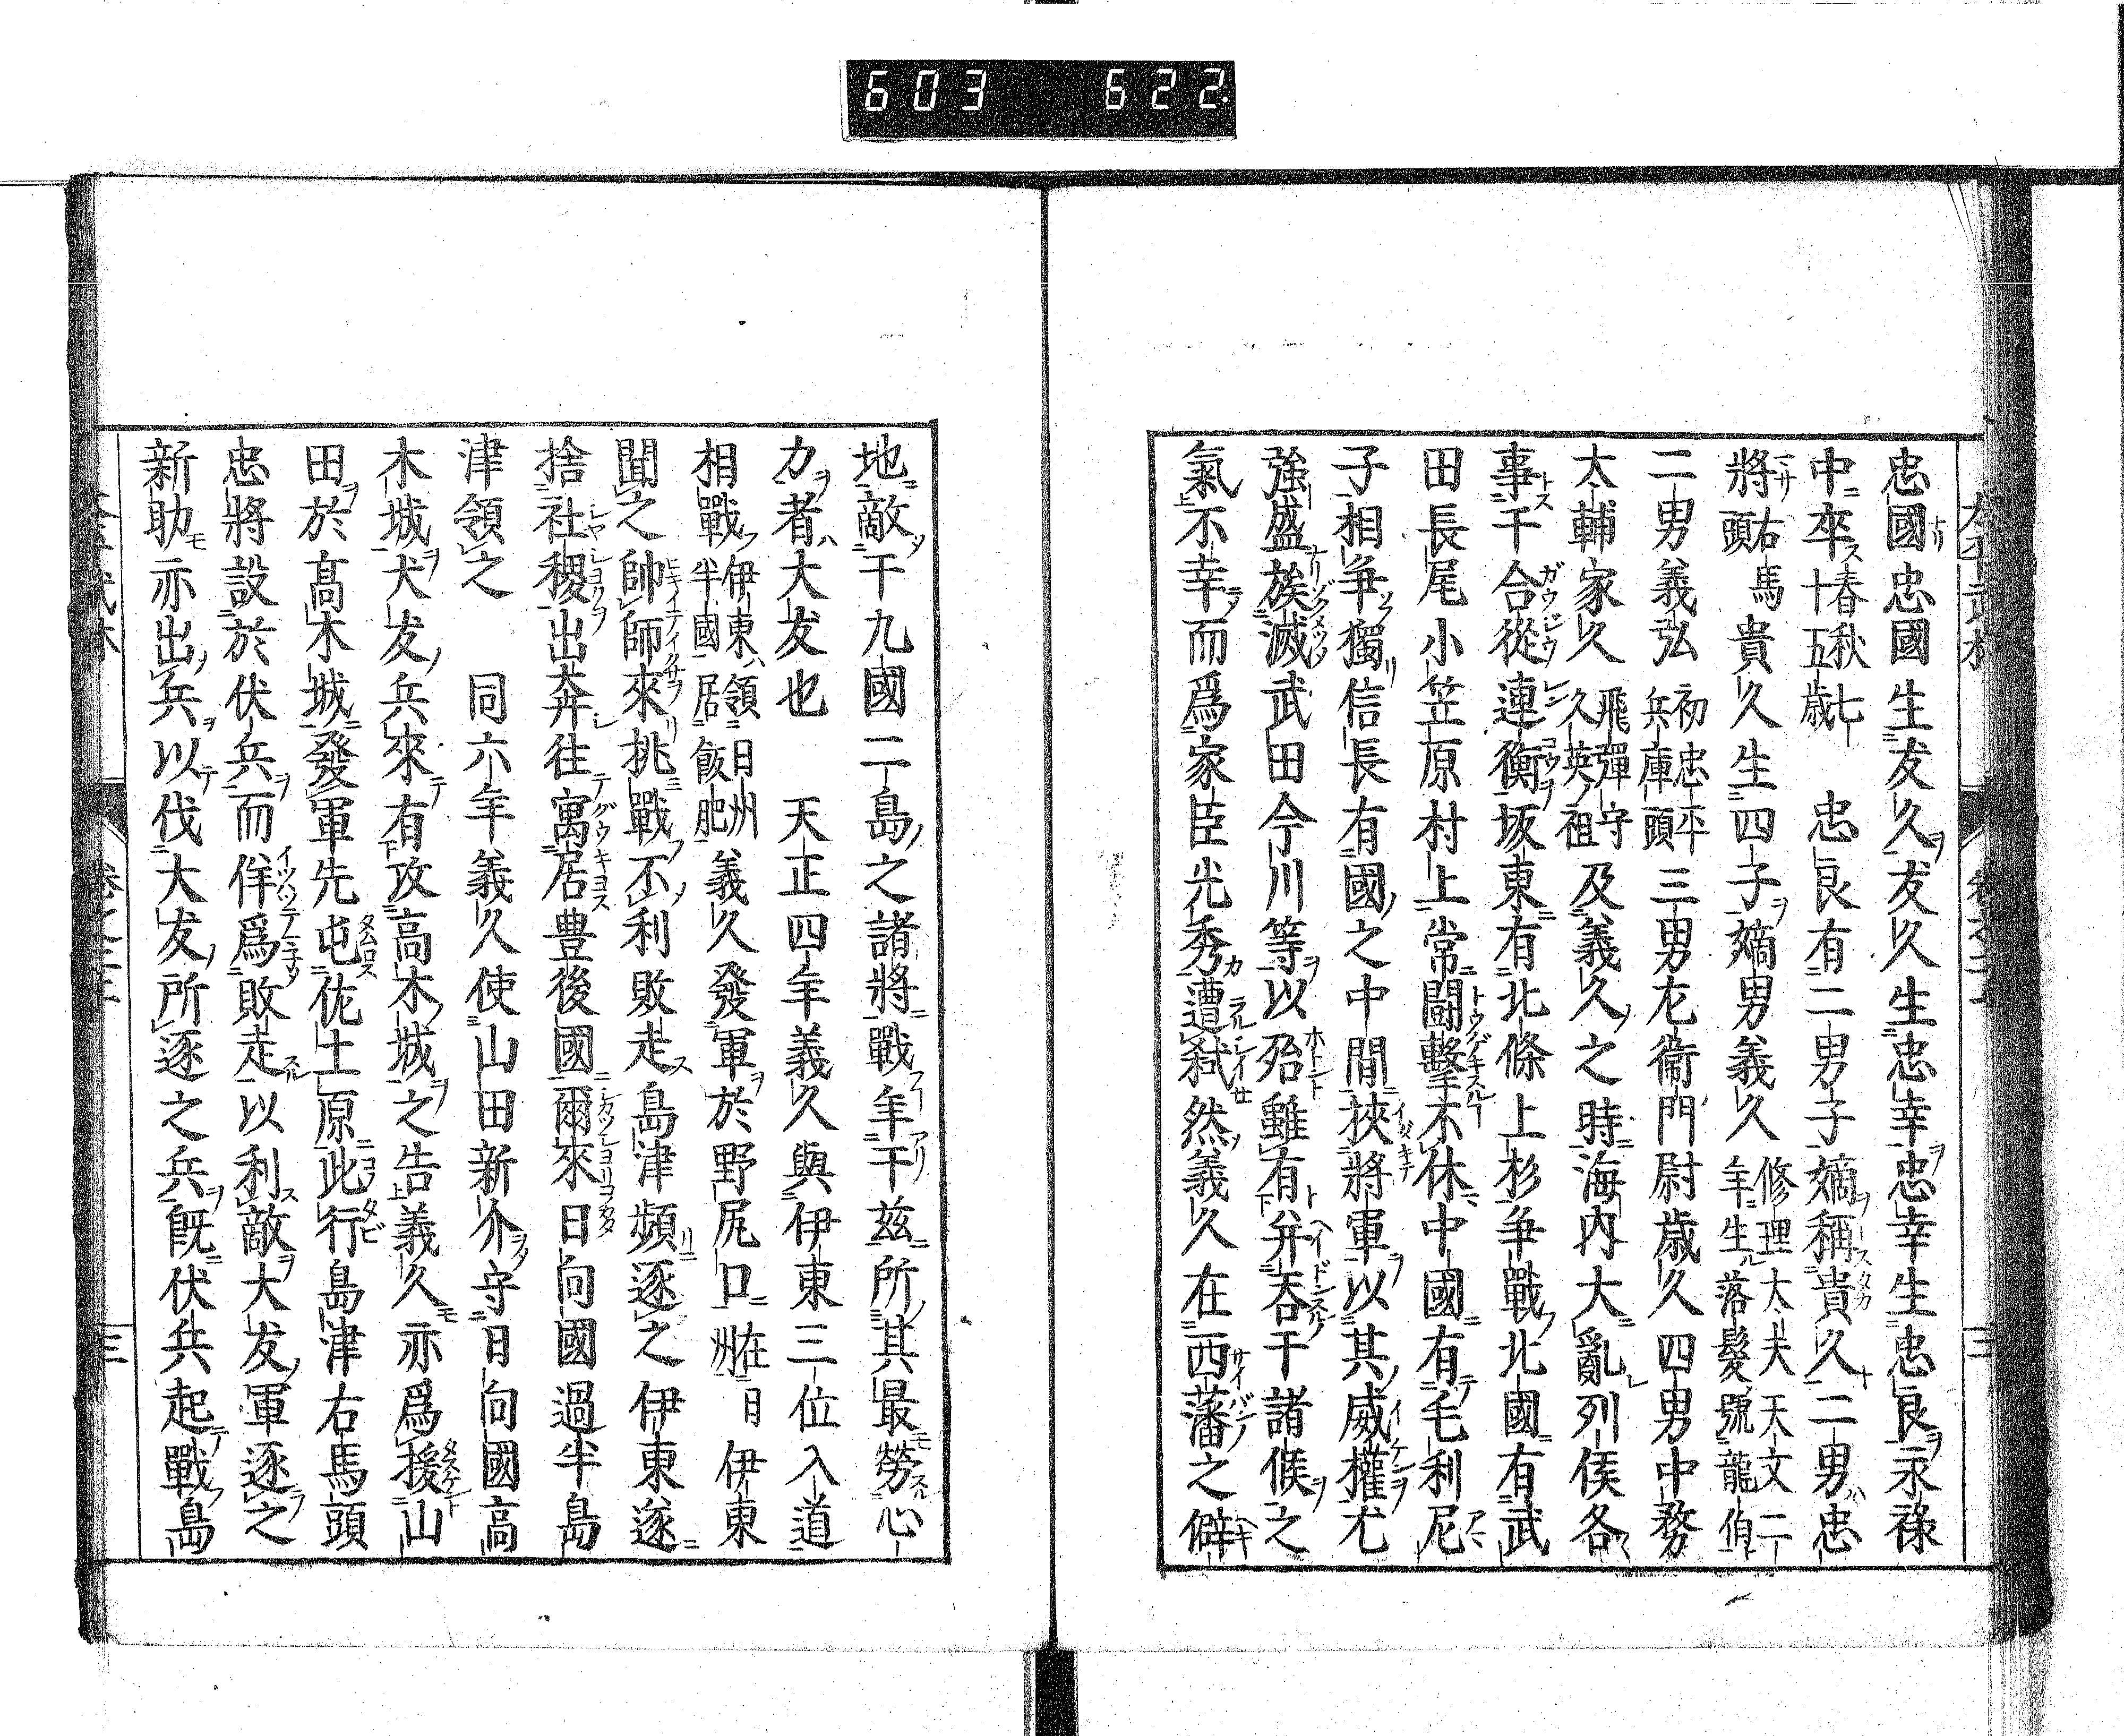 603 622.
忠國忠國生友久友久生忠幸忠幸生忠良永祿
中卒春秋七十五歳 忠良有二男子嫡稱貴久二男忠
將右馬頭貴久生四子嫡男義久修理大夫天文二年生落髮號龍伯
二男義弘初忠平兵庫頭三男尤衞門尉歳久四男中務
太輔家久飛彈守久英祖及義久之時海内大亂列侯各
事干合從連衡坂東有北條上杉争戰北國有武
田長尾小笠原村上常闘擊不休中國有毛利尼
子相争獨信長有國之中間挾將軍以其威權尤
強盛族滅武田今川等以殆雖有弁吞干諸候之
氣不幸而爲家臣光秀遭弑然義久在西藩之僻
地敵干九國二島之諸將戰年干玆所其最勞心
力者大友也 天正四年義久與伊東三位入道
相戰伊東領日州半國居飯肥義久發軍於野尻口在日州伊東
聞之帥師來挑戰不利敗走島津頻逐之伊東遂
捨社稷出奔往寓居豊後國爾來日向國過半島
津領之 同六年義久使山田新介守日向國高
木城大友兵來有攻高木城之告義久亦爲援山
田於髙木城發軍先屯佐土原此行島津右馬頭
忠將設於伏兵而佯爲敗走以利敵大友軍逐之
新助亦出兵以伐大友所逐之兵既伏兵起戰島
三